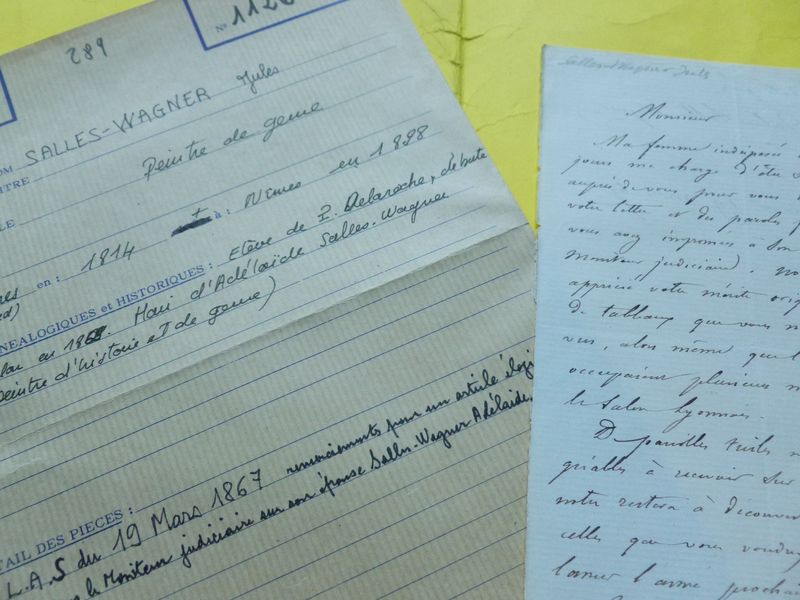 289
N° 1120
OM SALLES-WAGNER Jules
TITRE Peintre de genre
LE
en : 1814 + à : Nîmes en 1898
NÉALOGIQUES et HISTORIQUES : Elève de P. Delaroche, débute
Mari d'Adélaïde Salles-Wagner
peintre d'histoire et de genre)
TAIL DES PIECES :
L.A.S du 19 Mars 1867 remerciements pour un article élogi
le Moniteur judiciaire sur son épouse Salles-Wagner Adélaide.
Salles-Wagner Jules
Monsieur
Ma femme indisposée
jours me charge d'être
auprès de vous pour vous
votre lettre et des paroles
vous avez imprimées à son
moniteur judiciaire.
apprécié votre mérite
de tableaux que vous
vus, alors même que
occupaient plusieurs
le Salon Lyonnais.
D pareilles tuiles
gréables à recevoir sur
notre restera à découvert
celles que vous voudrez
lancer l'arme prochain